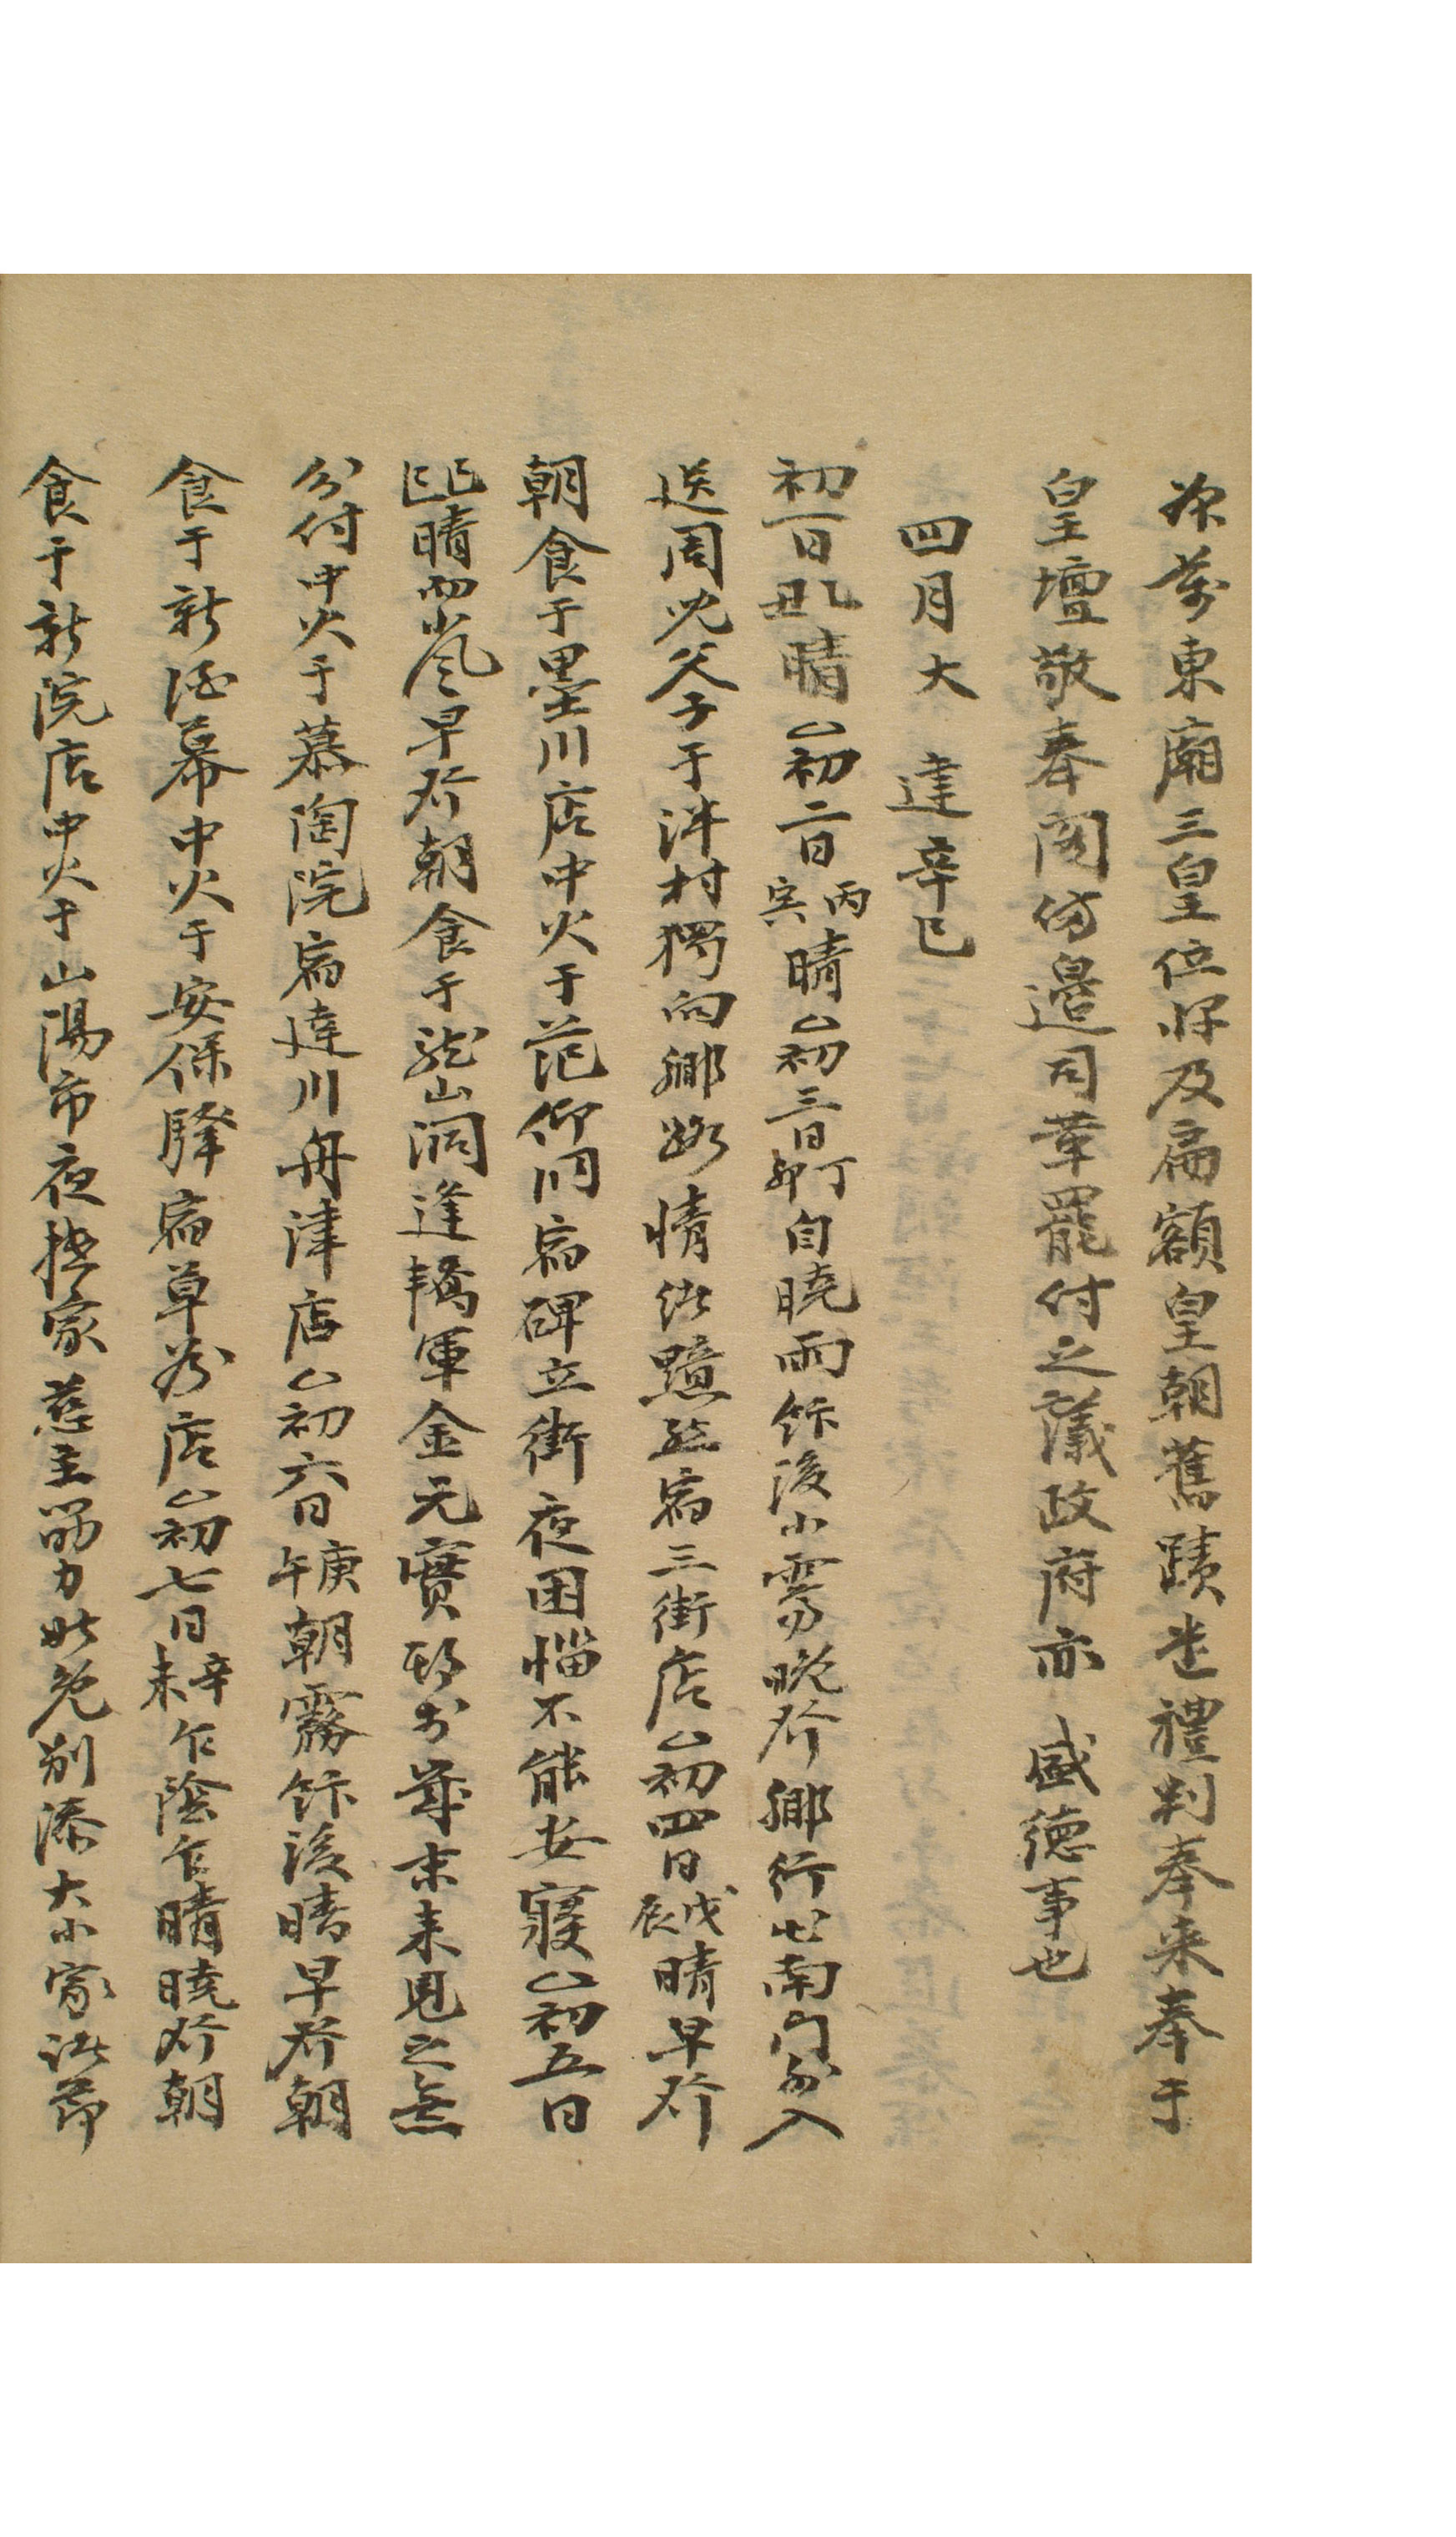 添萬東廟三皇位牌及扁額皇朝舊蹟送禮判奉來奉于
皇壇敬奉閣仿邉司革罷付之議政府亦 盛德事也
四月大 建辛巳
初一日乙丑晴△初二日丙寅晴△初三日丁卯自曉雨飯後小霽晩發鄉行出南門外入
送周兄父子于泮村獨向鄉路情緒黯然宿三街店△初四日戊辰晴早發
朝食于墨川店中火于茫仰川宿碑立街夜困惱不能安寢△初五日
己巳晴而風早發朝食于龍山洞逢轎軍金元實邸書莽未來見之無
分付中火于慕陶院宿達川丹津店△初六日庚午朝霧飯後晴早發朝
食于新酒幕中火于安保驛宿草谷店△初七日辛未乍陰乍晴曉發朝
食于新院店中火于山陽市夜抵家慈主筋力姑免別添大小家諸節